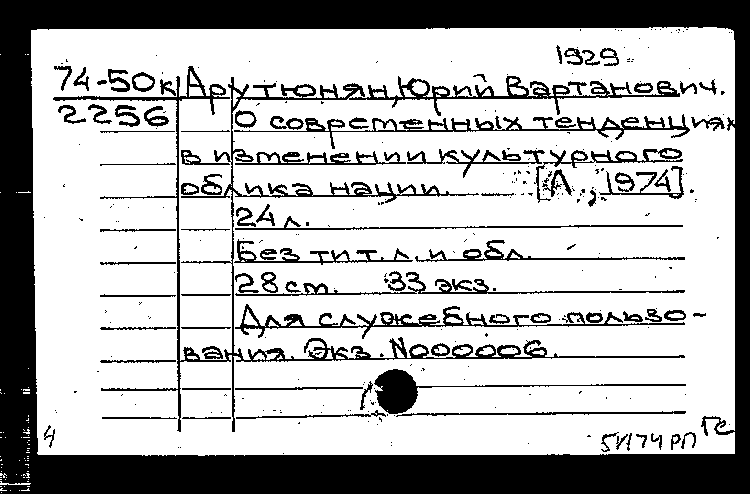 1929
74-50к Арутюнян, Юрий Вартанович.
2256 О современных тенденциях
в изменении культурного
облика нации. [Л., 1974].
24 л.
Без тит. л. и обл.
28 см. 33 экз.
Для служебного пользо-
вания. Экз. №000006.
4